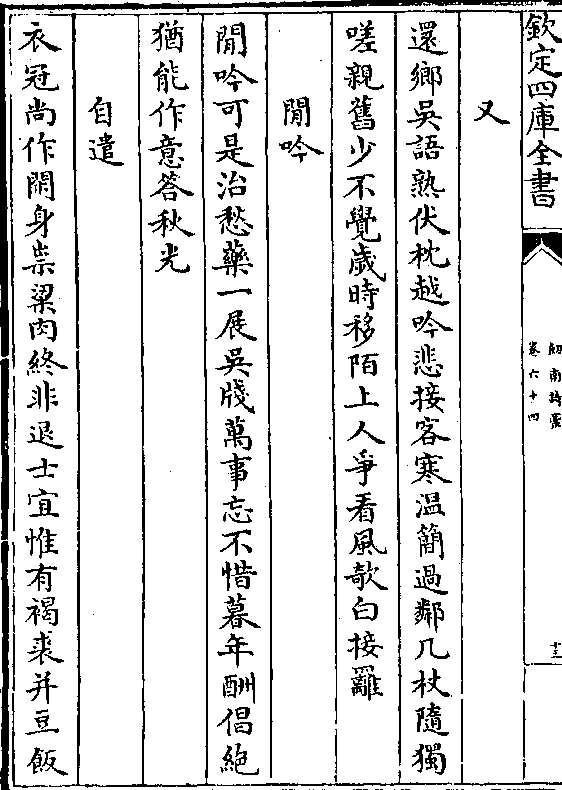 欽定四庫全書
劒南詩藁
卷六十四
十三
又
還鄉吳語熟伏枕越吟悲接客寒温簡過鄰几杖隨獨
嗟親舊少不覺歲時移陌上人爭看風欹白接䍦
閒吟
閒吟可是治愁藥一展吳牋萬事忘不惜暮年酬倡絶
猶能作意答秋光
自遣
衣冠尚作閑身祟粱肉終非退士宜惟有褐裘并豆飯